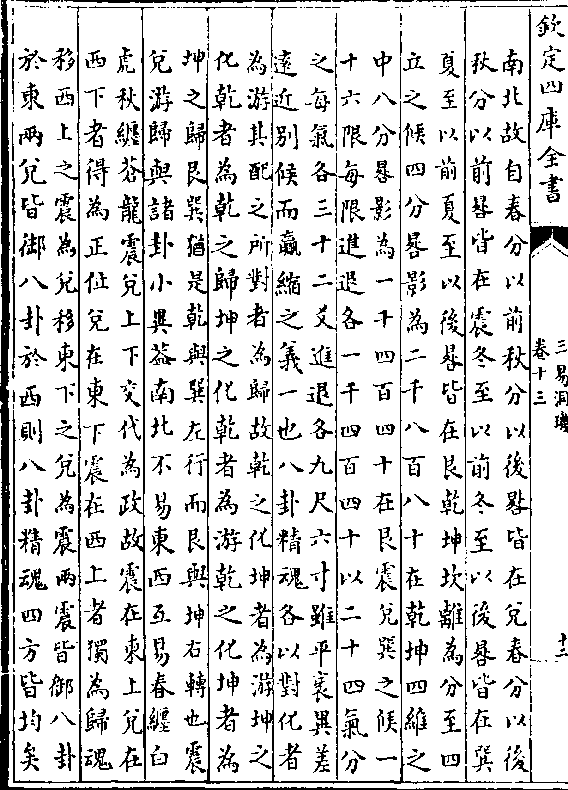 欽定四庫全書
三易洞璣
卷十三
十三
南北故自春分以前秋分以後晷皆在兌春分以後
秋分以前晷皆在震冬至以前冬至以後晷皆在巽
夏至以前夏至以後晷皆在艮乾坤坎離為分至四
立之候四分晷影為二千八百八十在乾坤四維之
中八分晷影為一千四百四十在艮震兌巽之候一
十六限每限進退各一千四百四十以二十四氣分
之每氣各三十二爻進退各九尺六寸雖平衺異差
遠近別候而贏縮之義一也八卦精魂各以對化者
為游其配之所對者為歸故乾之化坤者為游坤之
化乾者為乾之歸坤之化乾者為游乾之化坤者為
坤之歸艮巽猶是乾與巽左行而艮與坤右轉也震
兌游歸與諸卦小異葢南北不易東西互易春纏白
虎秋纏蒼龍震兌上下交代為政故震在東上兌在
西下者得為正位兌在東下震在西上者獨為歸魂
移西上之震為兌移東下之兌為震兩震皆御八卦
於東兩兌皆御八卦於西則八卦精魂四方皆均矣